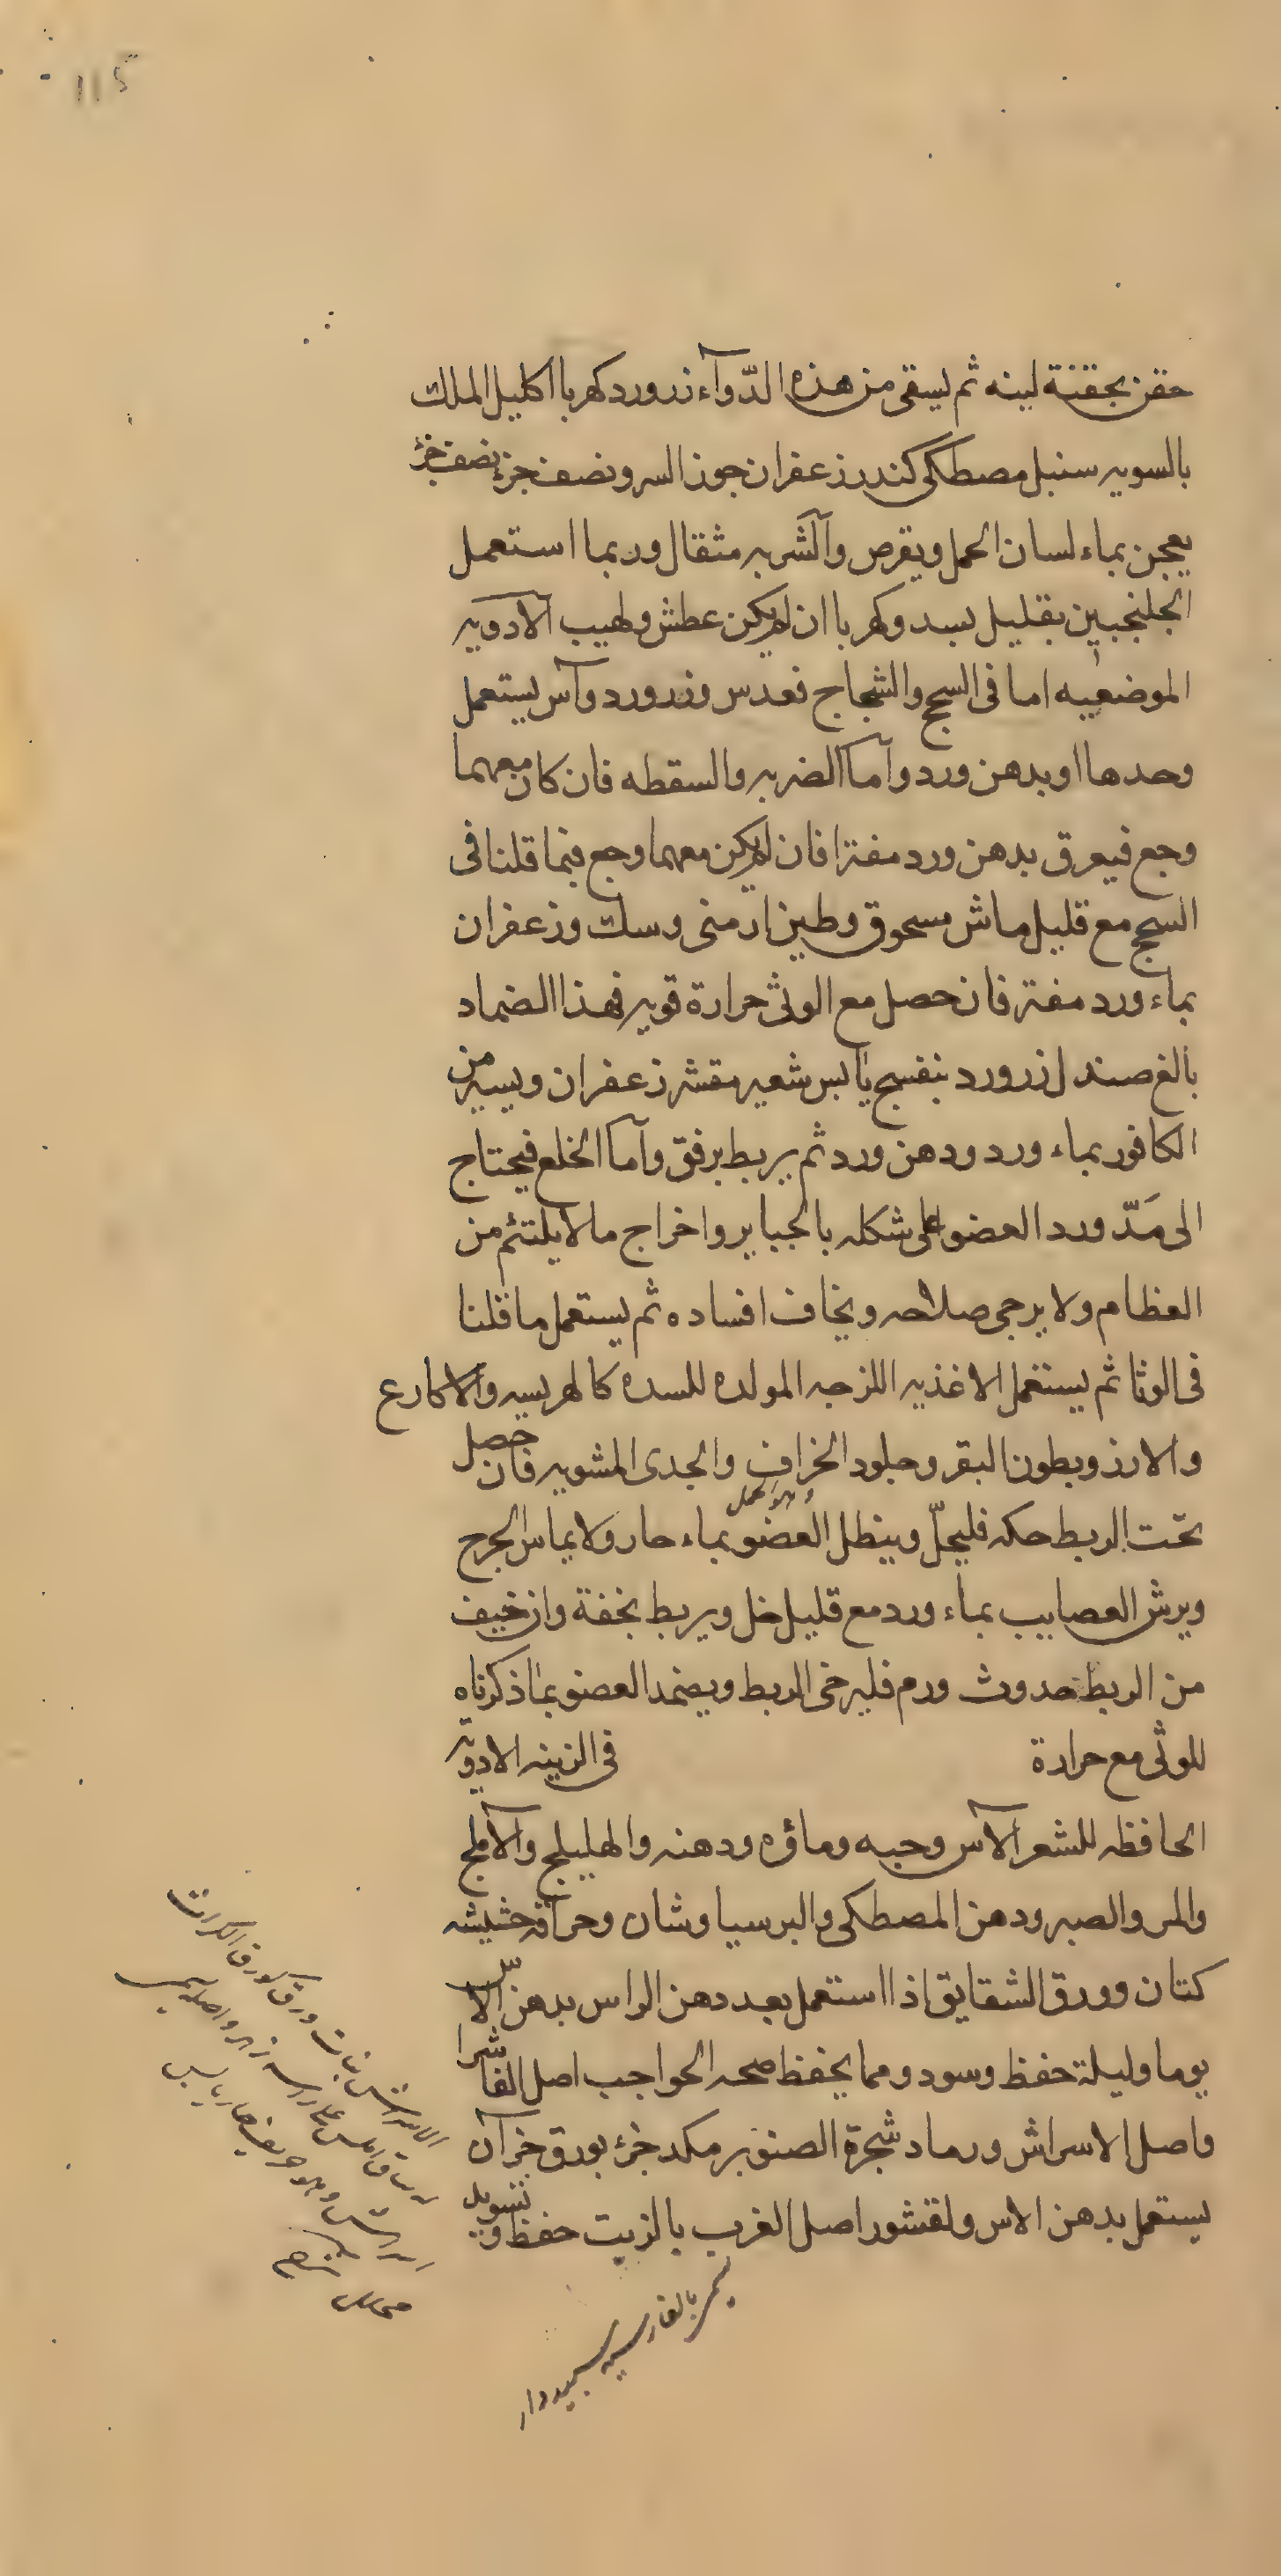 حقن بحقنة لينه ثم يسقى من هذه الدّوآء زرورد كهربا اكليل الملك
بالسويه سنبل مصطكى كندر زعفران جوز السرو نصف جزء نصف جزء
يعجن بماء لسان الحمل ويقرص والشربه مثقال وربما استعمل
الجلنجبين بقليل بسد وكهربا ان لم يكن عطش ولهيب الادويه
الموضعيه اما فى السحج والشجاج فعدس وزرورد وآس يستعمل
وحدها او بدهن ورد وآما الضربه والسقطه فان كان معهما
وجع فيعرق بدهن ورد مفترا فان لم يكن معهما وجع فيما قلنا فى
السحج مع قليل ماش مسحوق وطين ارمنى وسك وزعفران
بماء ورد مفتر فان حصل مع الوثى حرارة قويه فهذا الضماد
بالغ صندل زرورد بنفسج يابس شعير مقشر زعفران ويسير من
الكافور بماء ورد ودهن ورد ثم يربط برفق وآما الخلع فيحتاج
الى مَدّ ورد العضو على شكله بالجباير واخراج ما لا يلتئم من
العظام ولا يرجى صلاحه ويخاف افساده ثم يستعمل ما قلنا
فى الوثا ثم يستعمل الاغذيه اللزجه المولده للسده كالهريسه والاكارع
والارز وبطون البقر وجلود الخراف والجدى المشويه فان حصل
تحت الربط حكه فليحلّ وينطل العضو بماء حار ولا يماس الجرح
ويرش العصايب بماء ورد مع قليل خل ويربط بخفة وان خيف
من الربط حدوث ورم فليرخى الربط ويضمد العضو بما ذكرناه
للوثى مع حرارة فى الزينه الادويه
الحافظه للشعر الآس وحبه وماؤه ودهنه والهليلج والآملج
والمر والصبر ودهن المصطكى والبرسياوشان وحراقه حشيشه
كتان وورق الشقايق اذا استعمل بعد دهن الراس بدهن الاس
يوما وليلة حفظ وسود ومما يحفظ صحه الحواجب اصل الفاشرا
واصل الاسراش ورماد شجرة الصنوبر مكد جزء بورق جزآن
يستعمل بدهن الاس ولقشور اصل الغرب بالزيت حفظ وتسويد
بالفارسيه سبيددار